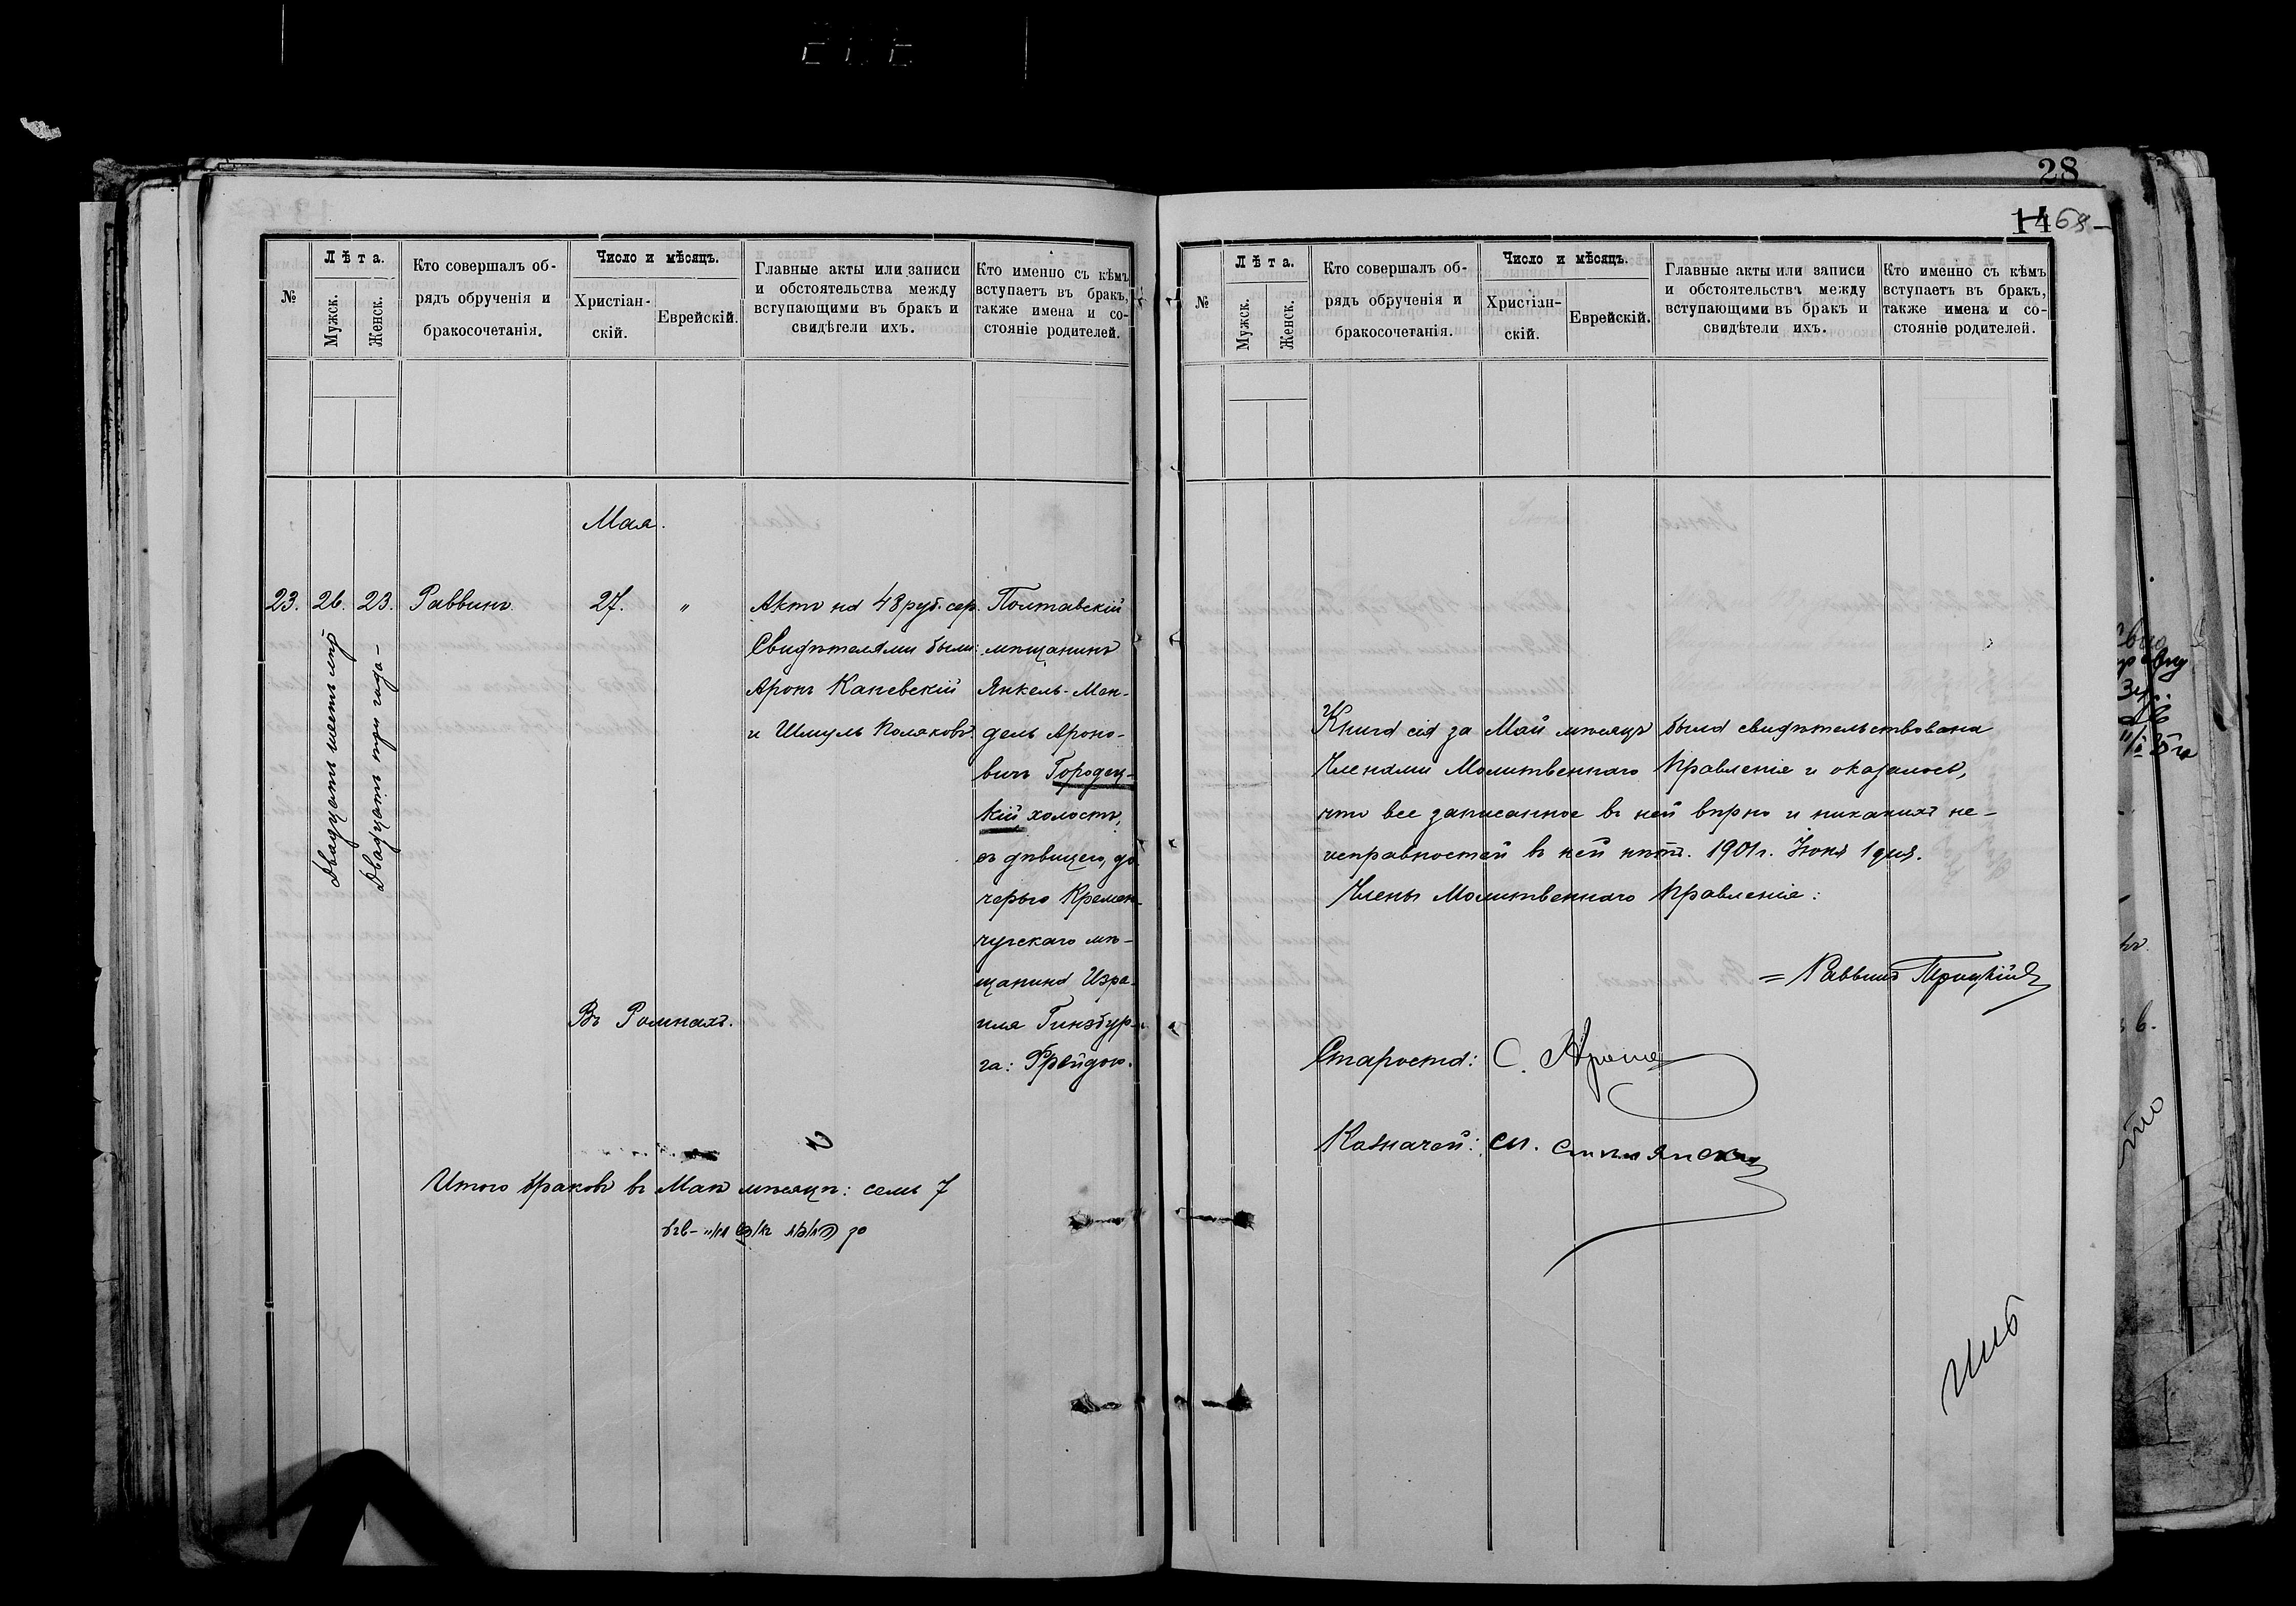 28
14 68
№
Лѣта.
Мужск.
Женск.
Кто совершалъ об-
рядъ обрученія и
бракосочетанія.
Число и мѣсяцъ.
Христіан-
скій.
Еврейскій.
Главные акты или записи
и обстоятельства между
вступающими въ бракъ и
свидѣтели ихъ.
Кто именно съ кѣмъ
вступаетъ въ бракъ,
также имена и со-
стояніе родителей.
Мая.
23.
26.
Двадцать шесть лѣтъ
23.
Двадцать три года-
Раввинъ
27.
"
Актъ на 48 руб. сер.
Свидѣтелями были:
Аронъ Каневскій
и Шмуль Поляковъ
Полтавскій
мѣщанинъ
Янкель-Мен-
дель Ароно-
вичъ Городец-
кій холостъ,
съ дѣвицею, до
черью Кремен-
чугскаго мѣ-
щанина Изра-
иля Гинзбур-
га: Фрейдою.
Въ Ромнахъ.
Итого браковъ въ Маѣ мѣсяцѣ: семь 7
№
Лѣта.
Мужск.
Женск.
Кто совершалъ об-
рядъ обрученія и
бракосочетанія.
Число и мѣсяцъ.
Христіан-
скій.
Еврейскій.
Главные акты или записи
и обстоятельства между
вступающими въ бракъ и
свидѣтели ихъ.
Кто именно съ кѣмъ
вступаетъ въ бракъ,
также имена и со-
стояніе родителей.
Книга сія за Май мѣсяцъ была свидѣтельствована
Членами Молитвеннаго Правленія и оказалось,
что все записанное въ ней вѣрно и никакихъ не-
исправностей въ ней нѣтъ. 1901 г. Іюня 1 дня.
Члены Молитвеннаго Правленія:
= Раввинъ
Староста: С.
Казначей: